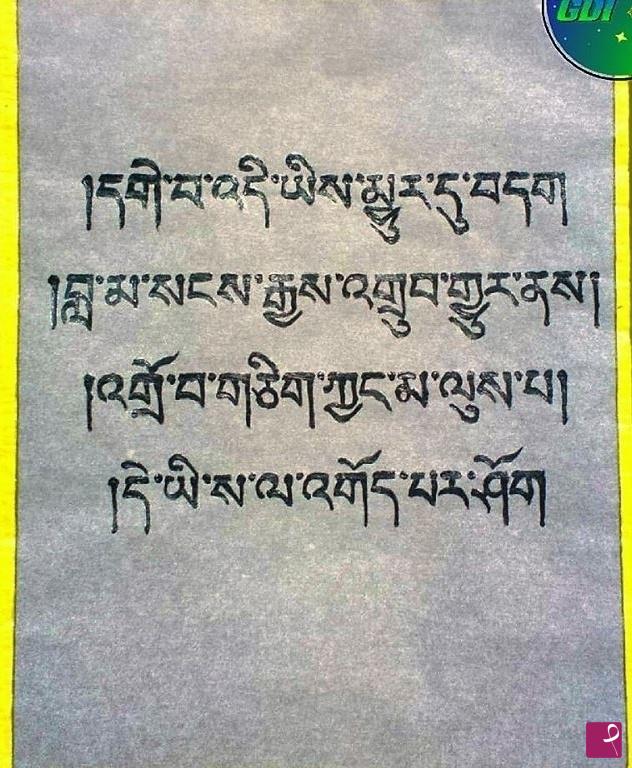 GDI
།དགེ་བ་འདི་ཡིས་མྱུར་དུ་བདག
།བླ་མ་སངས་རྒྱས་འགྲུབ་གྱུར་ནས།
།འགྲོ་བ་གཅིག་ཀྱང་མ་ལུས་པ།
།དེ་ཡི་ས་ལ་འགོད་པར་ཤོག